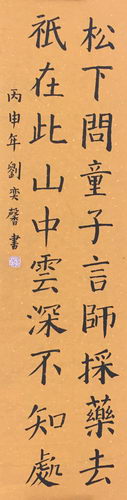 松下問童子言師採藥去
祇在此山中雲深不知處
丙申年劉奕馨書